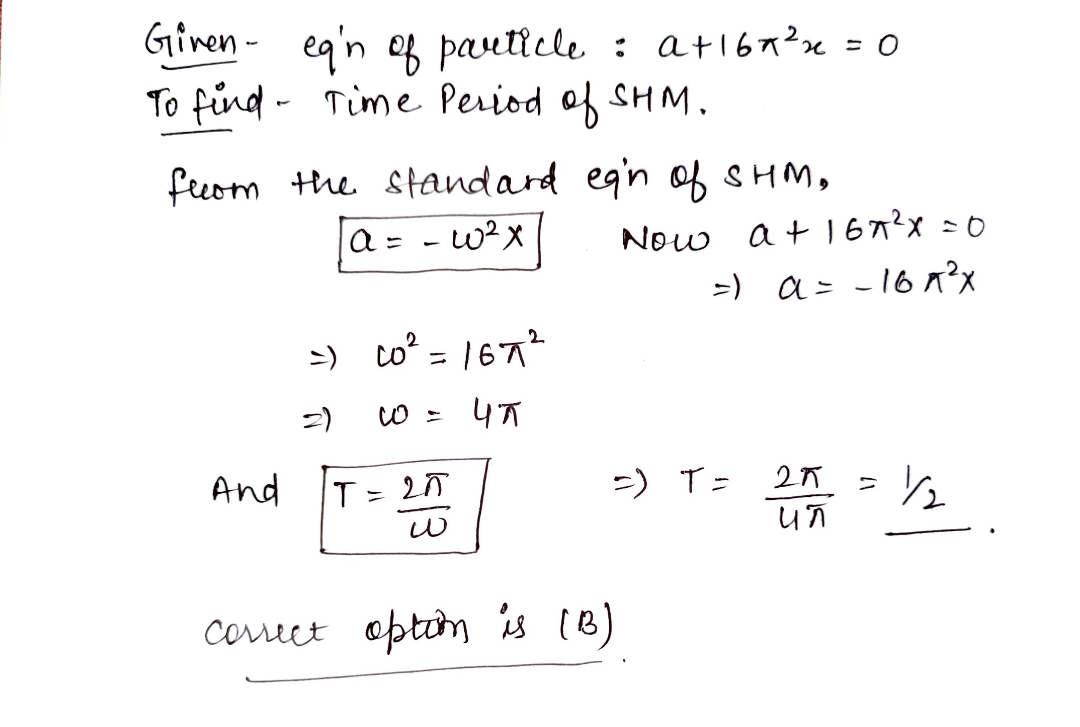 Given - eq'n of particle : a+16π²x = 0
To find - Time Period of SHM.
from the standard eq'n of SHM,
a = - ω²x Now a + 16π²x = 0
=) a = - 16 π²x
=) ω² = 16π²
=) ω = 4π
And T = 2π/ω =) T = 2π/4π = 1/2 .
correct option is (B).